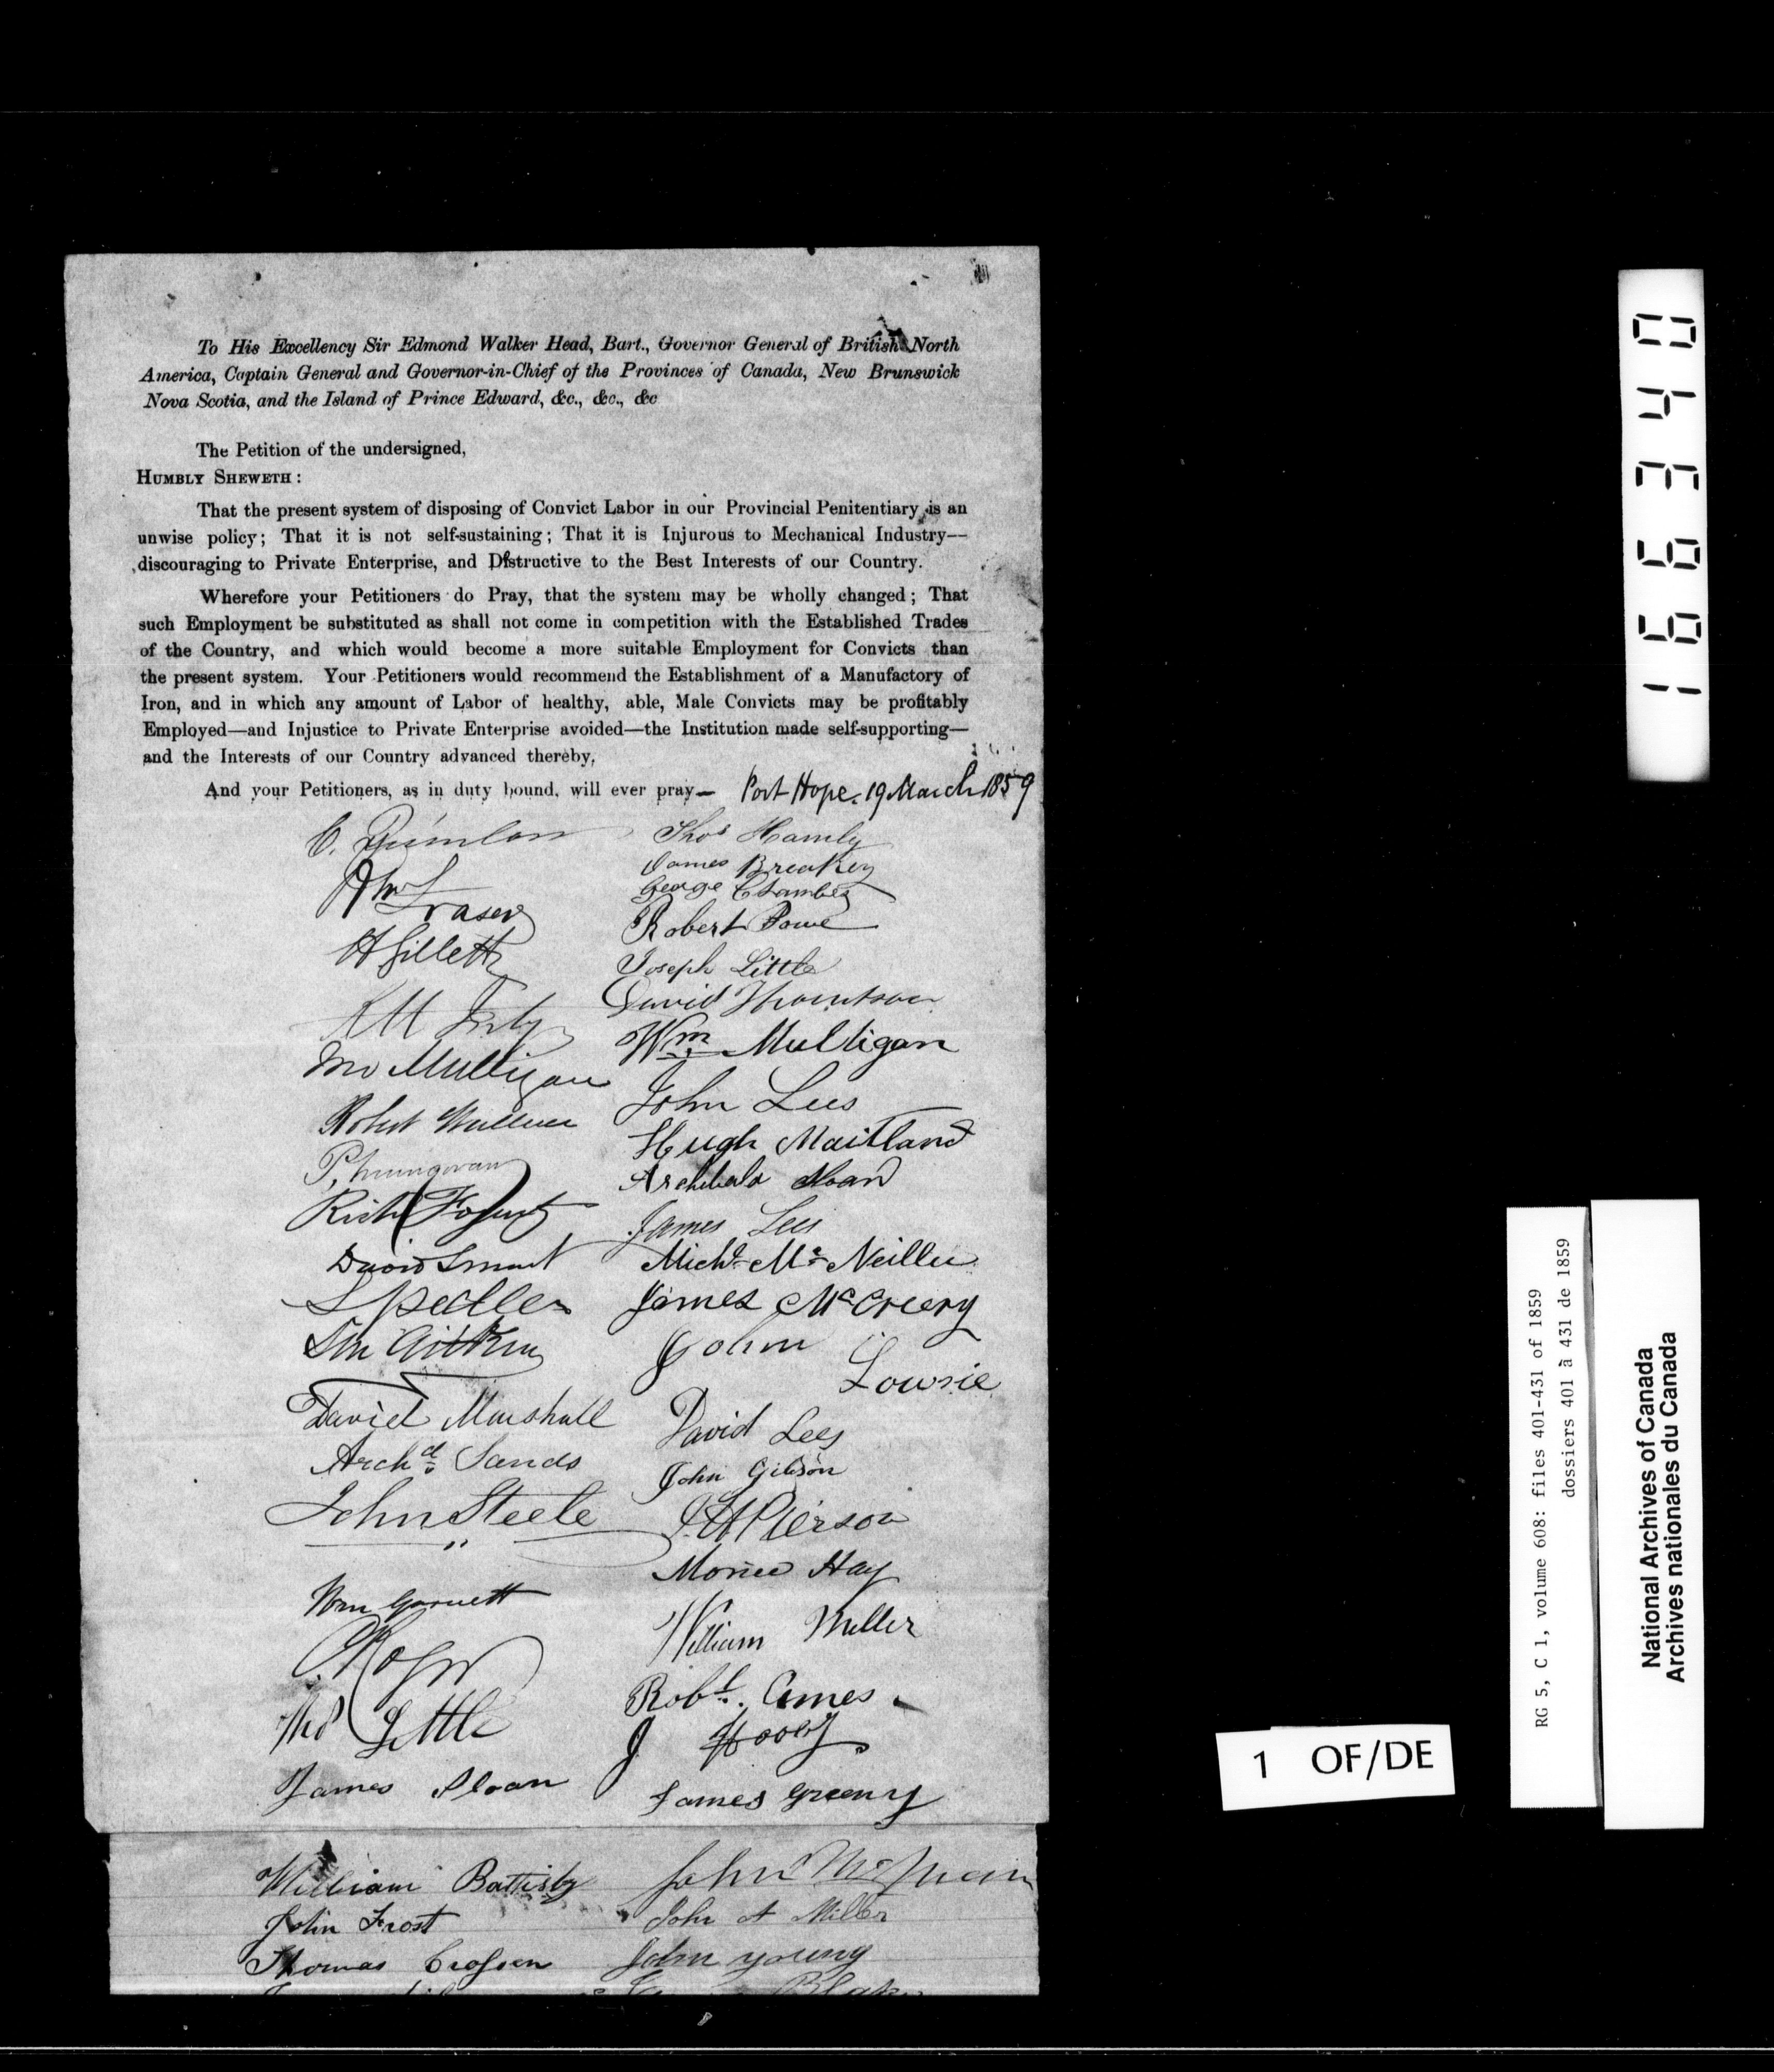 To His Excellency Sir Edmond Walker Head, Bart., Governor General of British North
America, Captain General and Governor-in-Chief of the Provinces of Canada, New Brunswick
Nova Scotia, and the Island of Prince Edward, &c., &c., &c
The Petition of the undersigned,
HUMBLY SHEWETH:
That the present system of disposing of Convict Labor in our Provincial Penitentiary is an
unwise policy; That it is not self-sustaining; That it is Injurous to Mechanical Industry—
discouraging to Private Enterprise, and Distructive to the Best Interests of our Country.
Wherefore your Petitioners do Pray, that the system may be wholly changed; That
such Employment be substituted as shall not come in competition with the Established Trades
of the Country, and which would become a more suitable Employment for Convicts than
the present system. Your Petitioners would recommend the Establishment of a Manufactory of
Iron, and in which any amount of Labor of healthy, able, Male Convicts may be profitably
Employed—and Injustice to Private Enterprise avoided—the Institution made self-supporting—
and the Interests of our Country advanced thereby,
And your Petitioners, as in duty bound, will ever pray— Port Hope. 19 March 1859
C. Quinlan
Fraser
H Gillett
Mulligan
Robert Wallace
David Smart
Spedlen
Aitkin
David Marshall
Archd. Sands
John Steele
Wm Garnett
Little
James Sloan
William Battisby
John Frost
Thomas Crossen
Thos Hamly
James Breakey
George Chambers
Robert
Joseph Little
David Thomtson
Wm Mulligan
John Lees
Hugh Maitland
Archibald Sloan
James Lees
Michl. Mc Neillie
James McCreery
John
Lowrie
David Lees
John Gibson
Pierson
Hay
William Miller
Robt. Ames
J Hooey
James Greeny
John
John A Miller
John young
Blake
1 6 6 3 4 0
RG 5, C 1, volume 608: files 401-431 of 1859
dossiers 401 à 431 de 1859
National Archives of Canada
Archives nationales du Canada
1 OF/DE